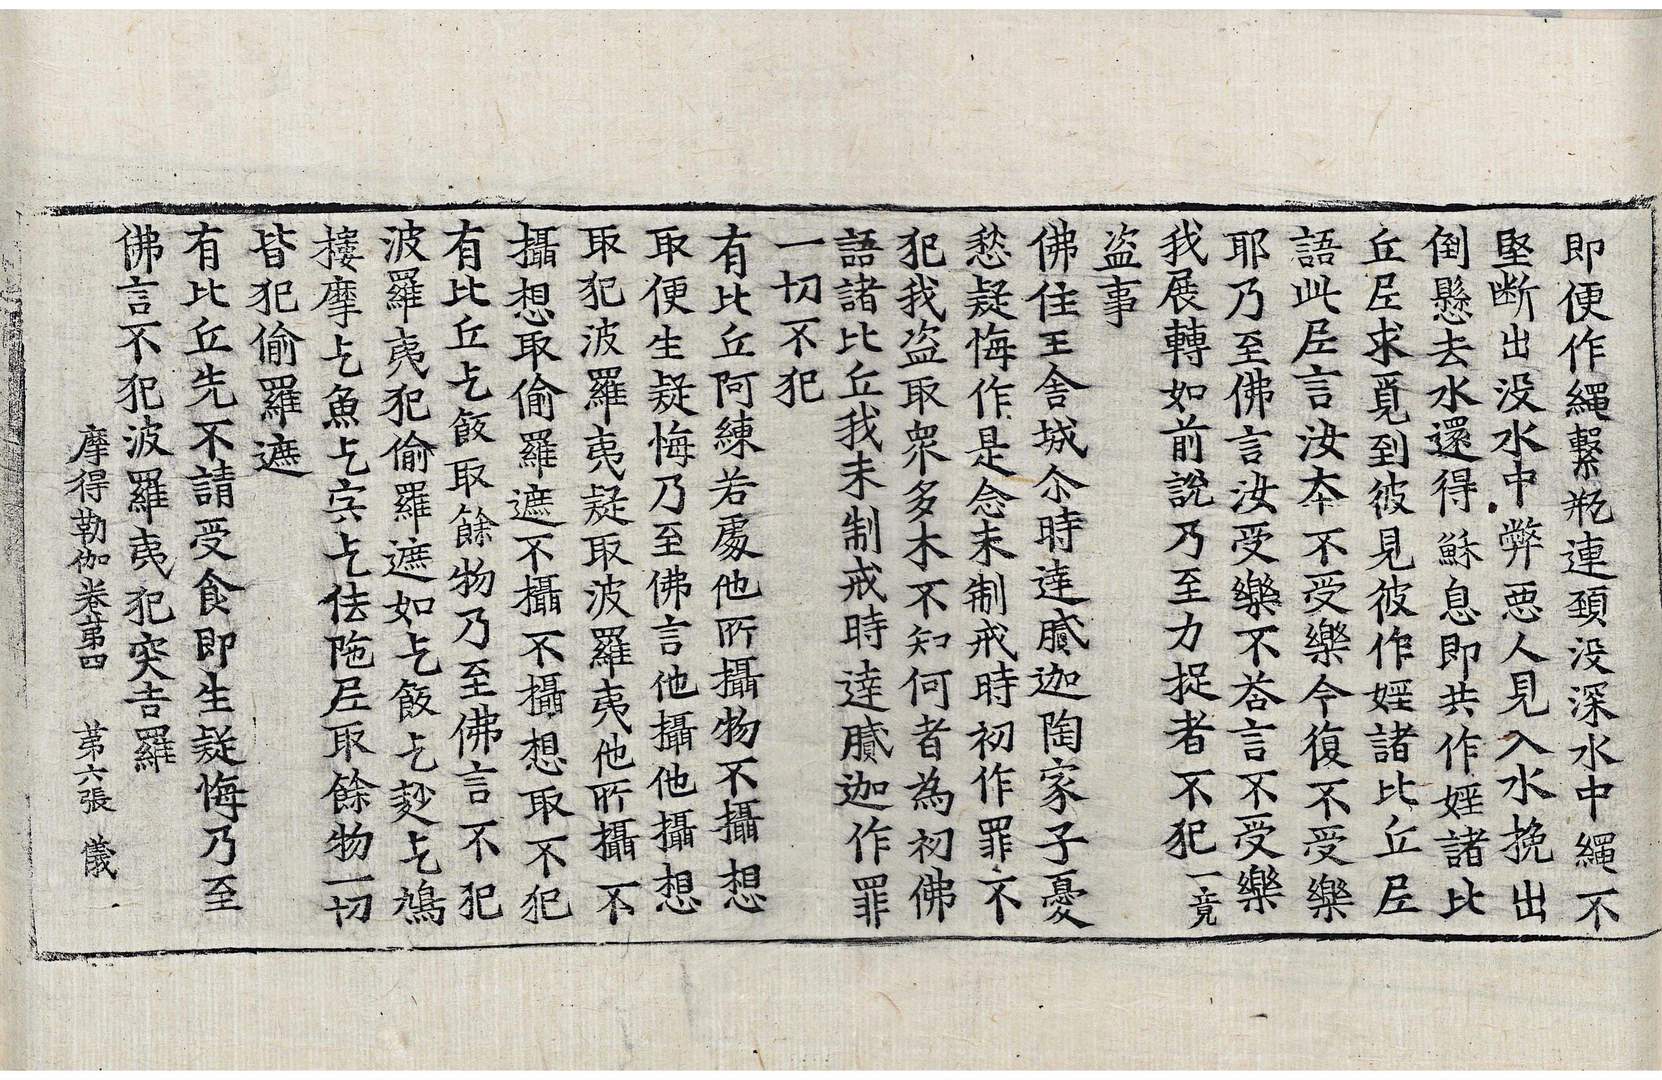 即便作繩繫瓶連頚没深水中繩不
堅断出没水中弊惡人見入水挽出
倒懸去水還得穌息即共作婬諸比
丘尼求覓到彼見彼作婬諸比丘尼
語此尼言汝本不受樂今復不受樂
耶乃至佛言汝受樂不荅言不受樂
我展轉如前說乃至力捉者不犯一竟
盗事
佛住王舍城尒時達膩迦陶家子憂
愁疑悔作是念未制戒時初作罪不
犯我盗取衆多木不知何者為初佛
語諸比丘我未制戒時達膩迦作罪
一切不犯
有比丘阿練若處他所攝物不攝想
取便生疑悔乃至佛言他攝他攝想
取犯波羅夷疑取波羅夷他所攝不
攝想取偷羅遮不攝不攝想取不犯
有比丘乞飯取餘物乃至佛言不犯
波羅夷犯偷羅遮如乞飯乞麨乞鳩
摟摩乞魚乞宍乞佉陁尼取餘物一切
皆犯偷羅遮
有比丘先不請受食即生疑悔乃至
佛言不犯波羅夷犯突吉羅
摩得勒伽卷第四 第六張 儀